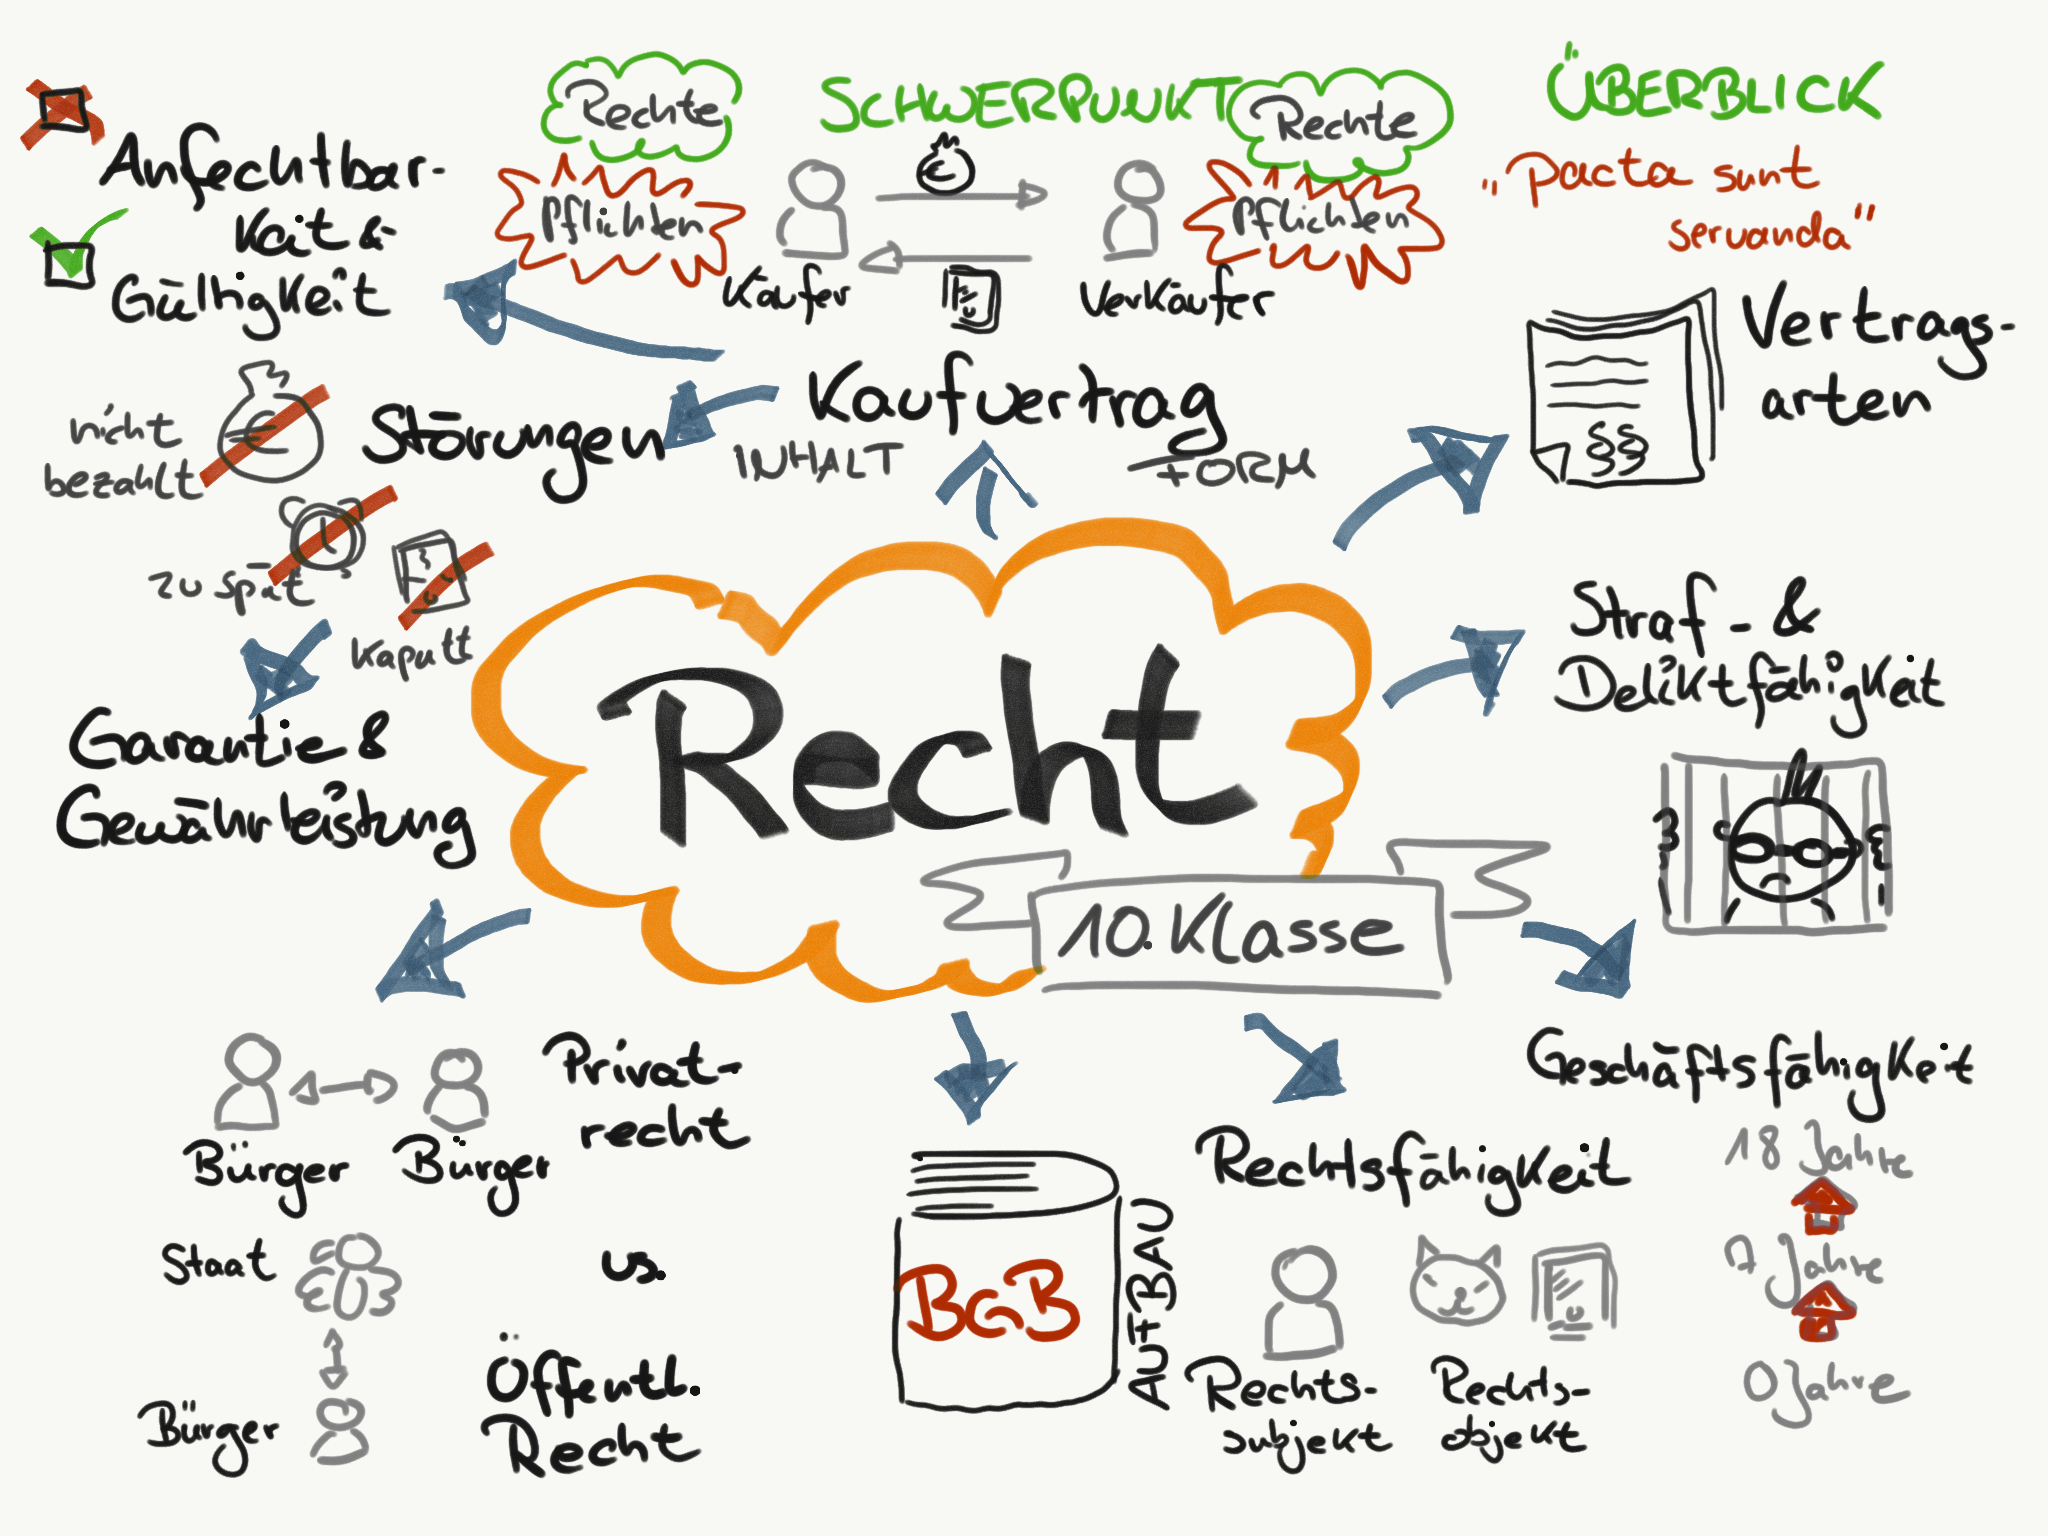 Rechte
SCHWERPUNKT
Rechte
ÜBERBLICK
Anfechtbar-
keit &
Gültigkeit
Pflichten
Käufer
Verkäufer
Pflichten
"pacta sunt
servanda"
Vertrags-
arten
§§
nicht
bezahlt
Störungen
Kaufvertrag
INHALT
FORM
zu spät
kaputt
Straf- &
Deliktfähigkeit
Garantie &
Gewährleistung
Recht
10. Klasse
Bürger
Bürger
Privat-
recht
Staat
vs.
Bürger
Öffentl.
Recht
BGB
AUFBAU
Rechtsfähigkeit
Rechts-
subjekt
Rechts-
objekt
Geschäftsfähigkeit
18 Jahre
7 Jahre
0 Jahre